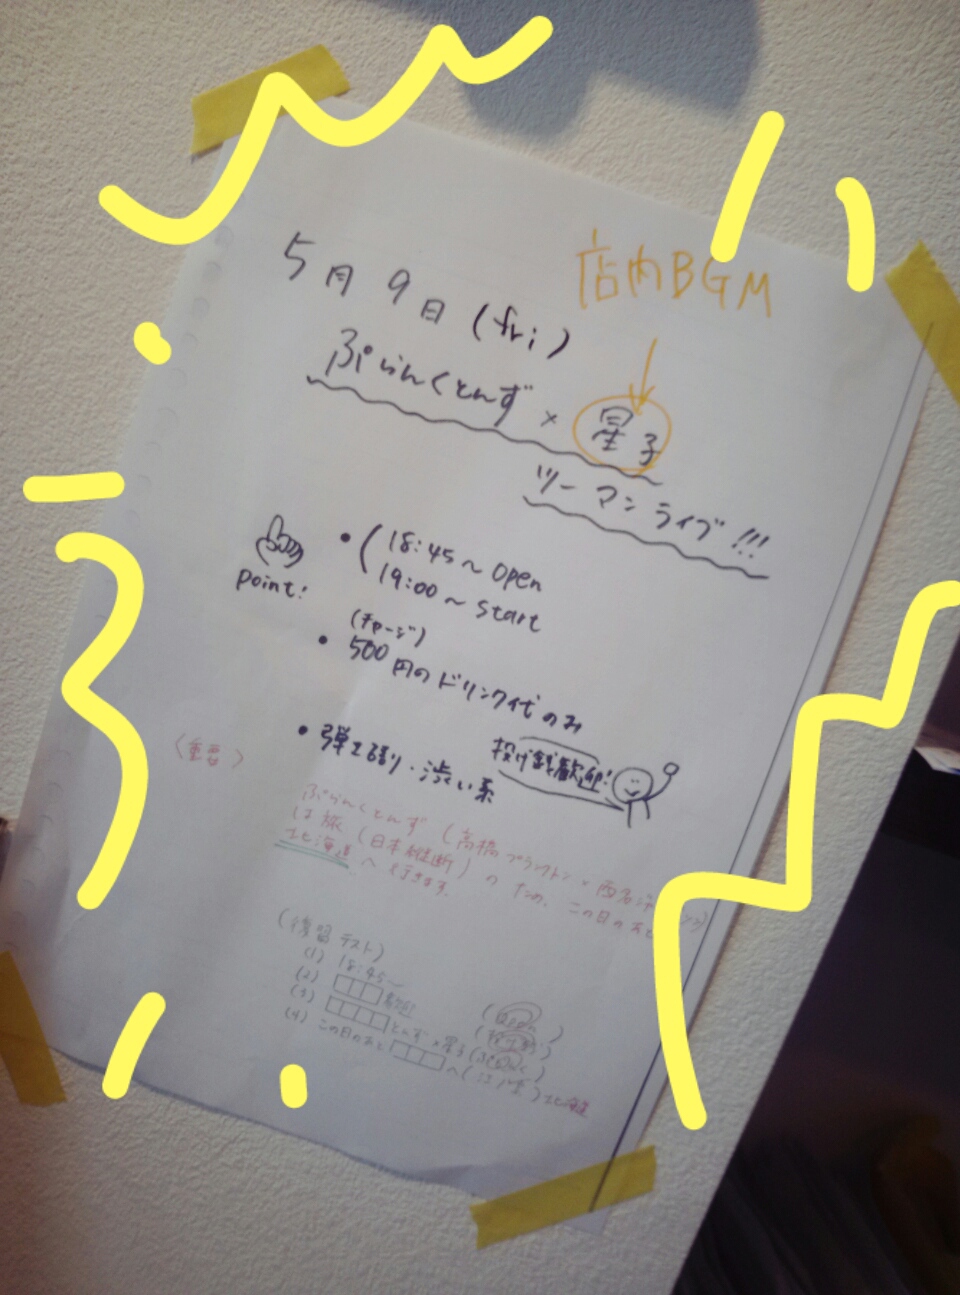 店内BGM
5月9日(fri)
ぷらんくとんず × 星子
ツーマンライブ!!!
point!
・(18:45〜open
19:00〜start
(チャージ)
・500円のドリンク代のみ
投げ銭歓迎!
・弾き語り・渋い系
〈重要〉
ぷらんくとんず(高橋プランクトン×西名
は旅(日本縦断)のため、この日のあと
北海道へ行きます。
(復習テスト)
(1) 18:45〜 (open)
(2) □□□歓迎 (投げ銭)
(3) □□□□とんず×星子(ぷらんく)
(4) この日のあと□□□へ( )北海道